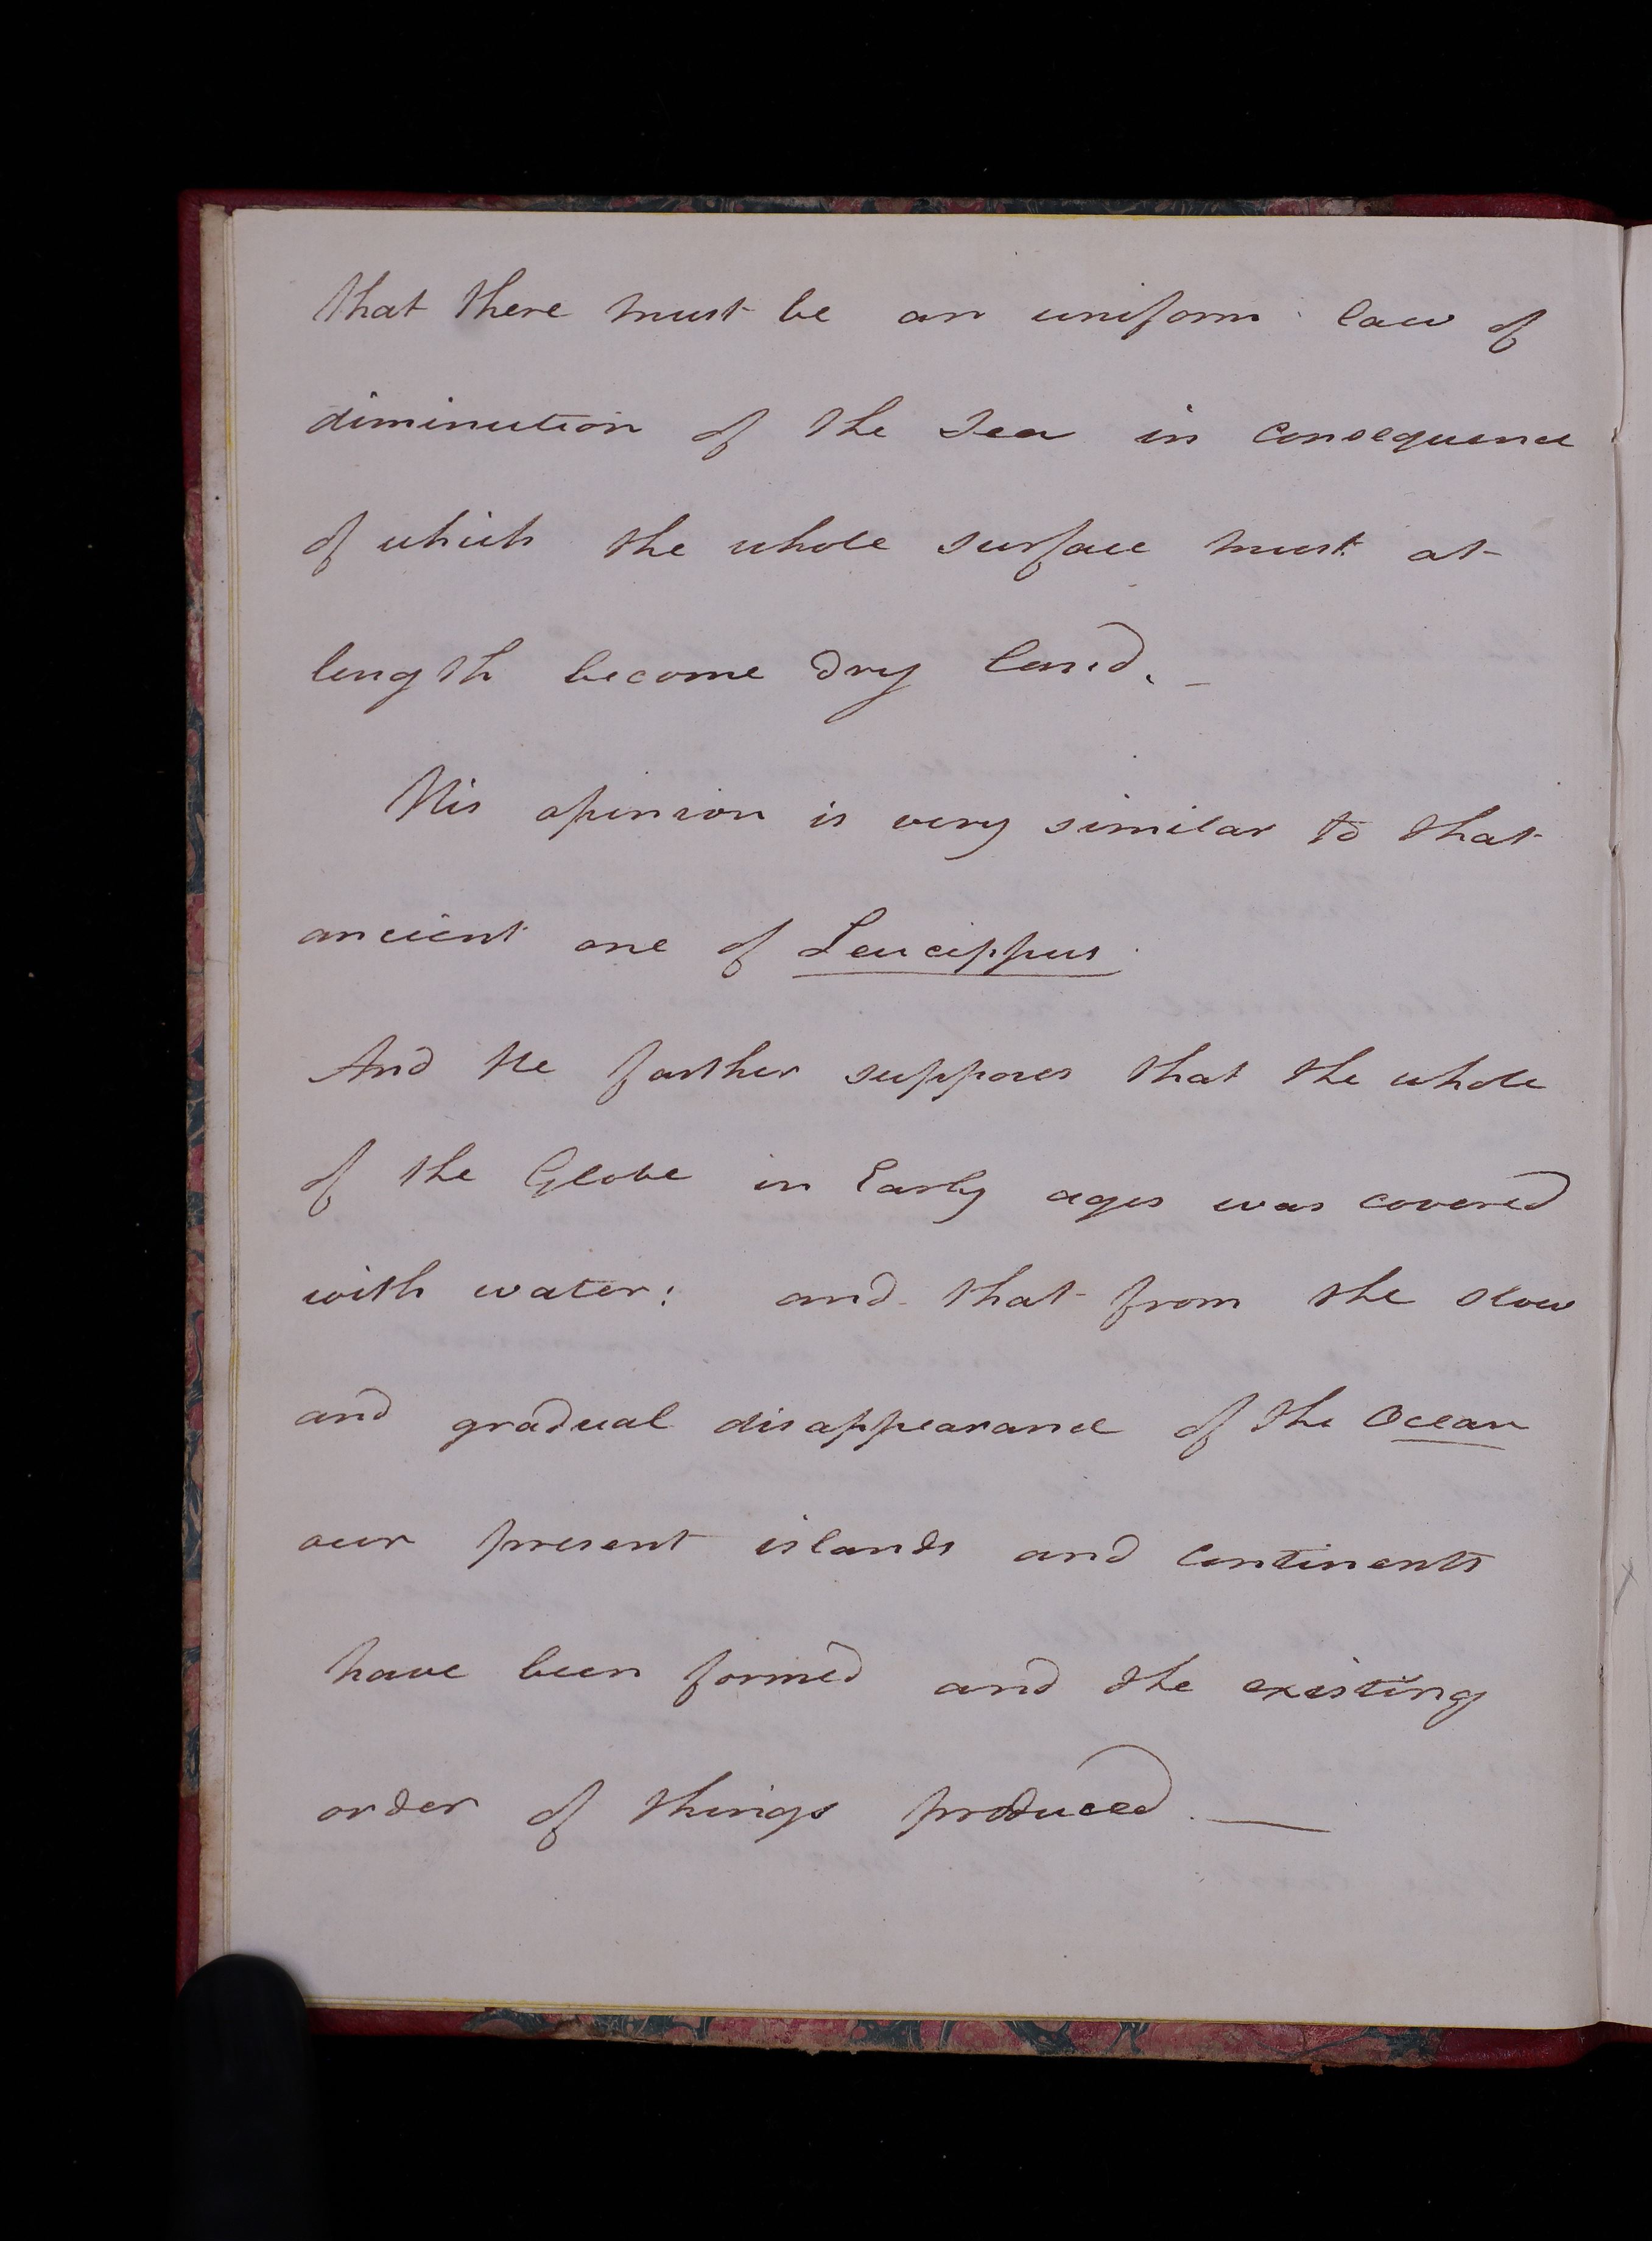 that there must be an uniform law of
diminution of the Sea in consequence
of which the whole surface must at
length become dry land. _
His opinion is very similar to that
ancient one of Leucippus.
And He farther supposes that the whole
of the Globe in Early ages was covered
with water: and that from the slow
and gradual disappearance of the Ocean
our present islands and continents
have been formed and the existing
order of things produced. —